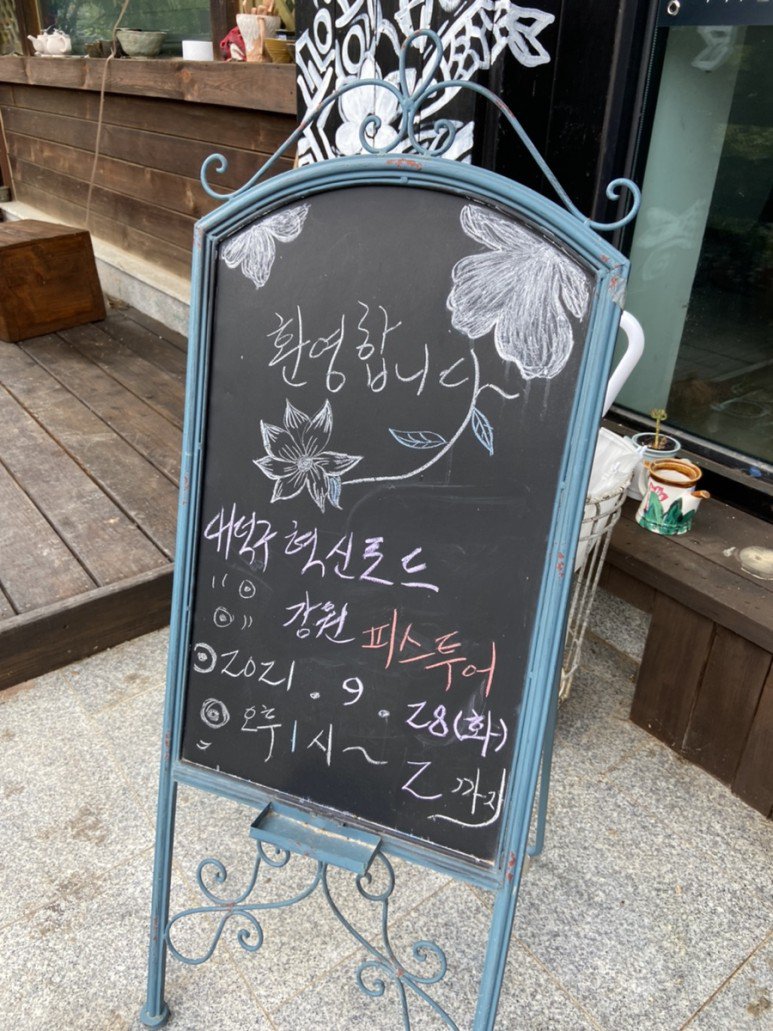 환영합니다~
대덕구 혁신로드
강원 피스투어
2021.9.28(화)
오후1시~2까지